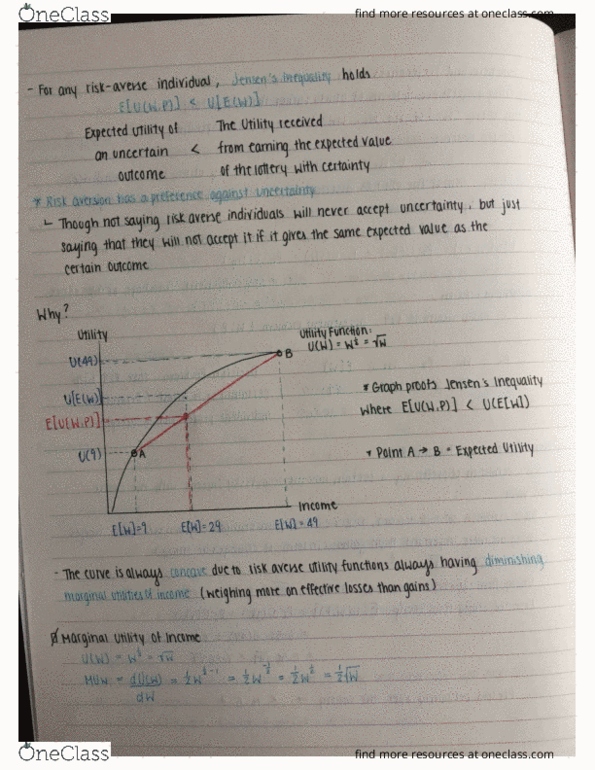 OneClass
find more resources at oneclass.com
- For any risk-averse individual, Jensen's Inequality holds
E[U(W,P)] < U[E(W)]
Expected utility of
an uncertain
outcome
<
The Utility received
from earning the expected value
of the lottery with certainty
* Risk aversion has a preference against uncertainty
∟ Though not saying risk averse individuals will never accept uncertainty, but just
saying that they will not accept it if it gives the same expected value as the
certain outcome
Why?
Utility
U(49)
U[E(W)]
E[U(W,P)]
U(9)
A
B
Utility Function:
U(W) = W½ = √W
* Graph proofs Jensen's Inequality
where E[U(W,P)] < U(E[W])
* Point A → B = Expected Utility
Income
E[W]=9
E[W]=29
E[W]=49
- The curve is always concave due to risk averse utility functions always having diminishing
marginal utilities of income (weighing more on effective losses than gains)
Marginal Utility of Income
U(W) = W½ = √W
MUW = dU(W)/dW = ½W½-1 = ½W-½ = ½W½ = ½√W
OneClass
find more resources at oneclass.com